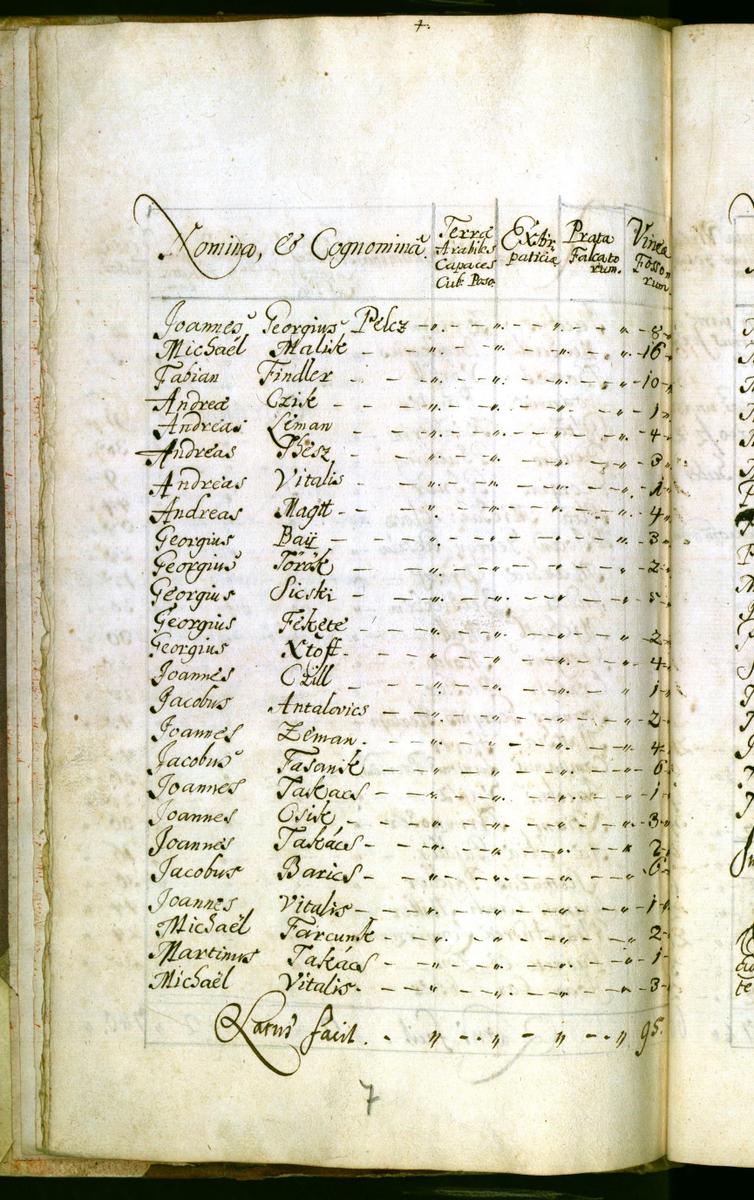 4.
Nomina, & Cognomina. Terræ Arabiles Capaces Cub. Poso. Extirpaticiæ Prata Falcatorum. Vinea Fossorum.
Joannes Georgius Pelcz - „ - - „ - - „ - - „ - 8
Michaël Malik - - „ - - „ - - „ - - „ - 16
Fabian Findler - - „ - - „ - - „ - - „ - 10
Andreæ Czik - - „ - - „ - - „ - - „ - 1
Andreas Leman - - „ - - „ - - „ - - „ - 4
Andreas Thesz - - „ - - „ - - „ - - „ - 3
Andreas Vitalis - - „ - - „ - - „ - - „ - 1
Andreas Magtt - - „ - - „ - - „ - - „ - 4
Georgius Baÿ - - „ - - „ - - „ - - „ - 3
Georgius Török - - „ - - „ - - „ - - „ - 2
Georgius Sicski - - „ - - „ - - „ - - „ - 5
Georgius Fekete - - „ - - „ - - „ - - „ - 2
Georgius Xtoff - - „ - - „ - - „ - - „ - 4
Joannes Czill - - „ - - „ - - „ - - „ - 1
Jacobus Antalovics - „ - - „ - - „ - - „ - 2
Joannes Zeman. - - „ - - „ - - „ - - „ - 4
Jacobus Fasanik - - „ - - „ - - „ - - „ - 6
Joannes Takacs - - „ - - „ - - „ - - „ - 1
Joannes Csik - - „ - - „ - - „ - - „ - 3
Joannes Takács - - „ - - „ - - „ - - „ - 2
Jacobus Barics - - „ - - „ - - „ - - „ - 6
Joannes Vitalis - - „ - - „ - - „ - - „ - 1
Michaël Farcunk - - „ - - „ - - „ - - „ - 2
Martinus Takács - - „ - - „ - - „ - - „ - 1
Michaël Vitalis. - - „ - - „ - - „ - - „ - 3
Latus facit. - „ - - „ - - „ - - „ 95.
7